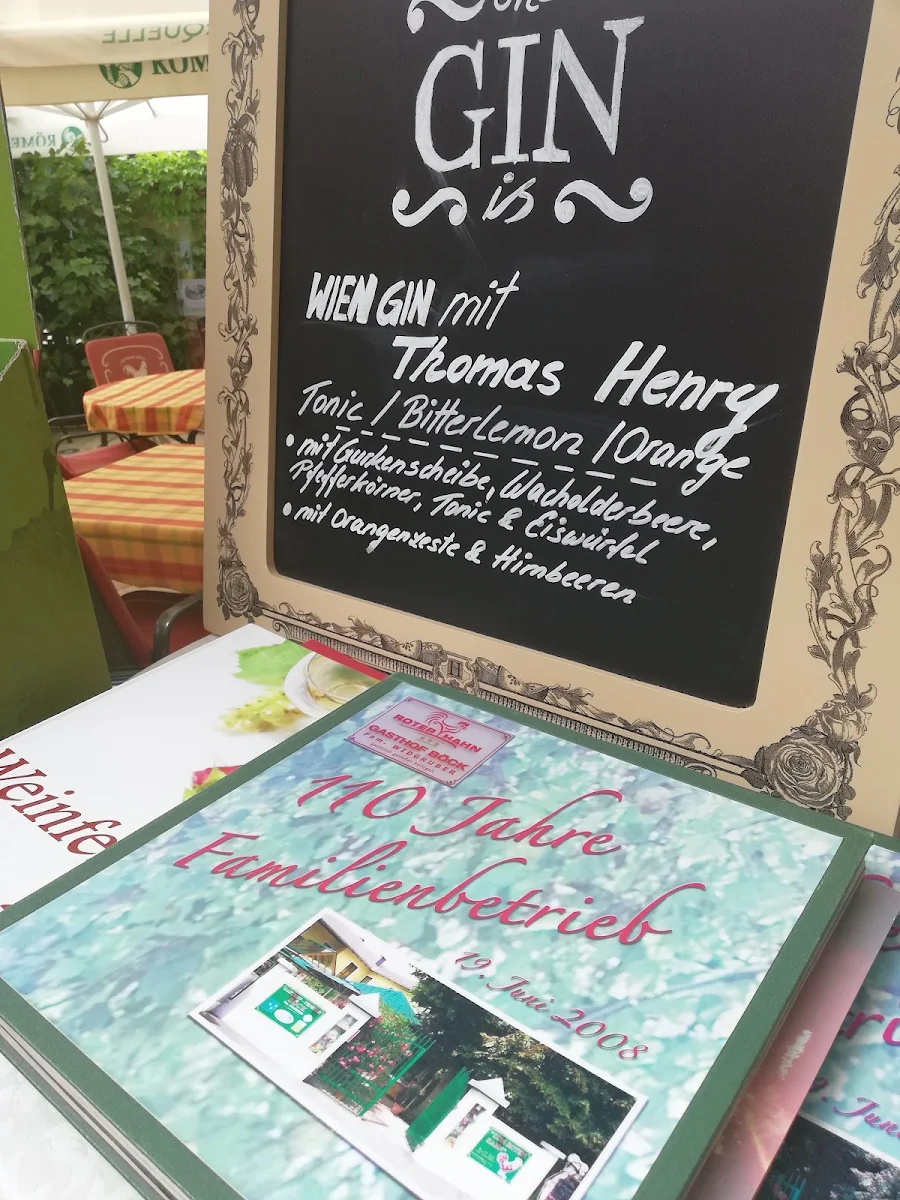 GIN
is
WIEN GIN mit
Thomas Henry
Tonic / Bitterlemon / Orange
• mit Gurkenscheibe, Wacholderbeere,
Pfefferkörner, Tonic & Eiswürfel
• mit Orangenzeste & Himbeeren
QUELLE
RÖM
RÖME
Weinfe
ROTER HAHN
GASTHOF BÖCK
FAM. WIDGRUBER
110 Jahre
Familienbetrieb
19. Juni 2008